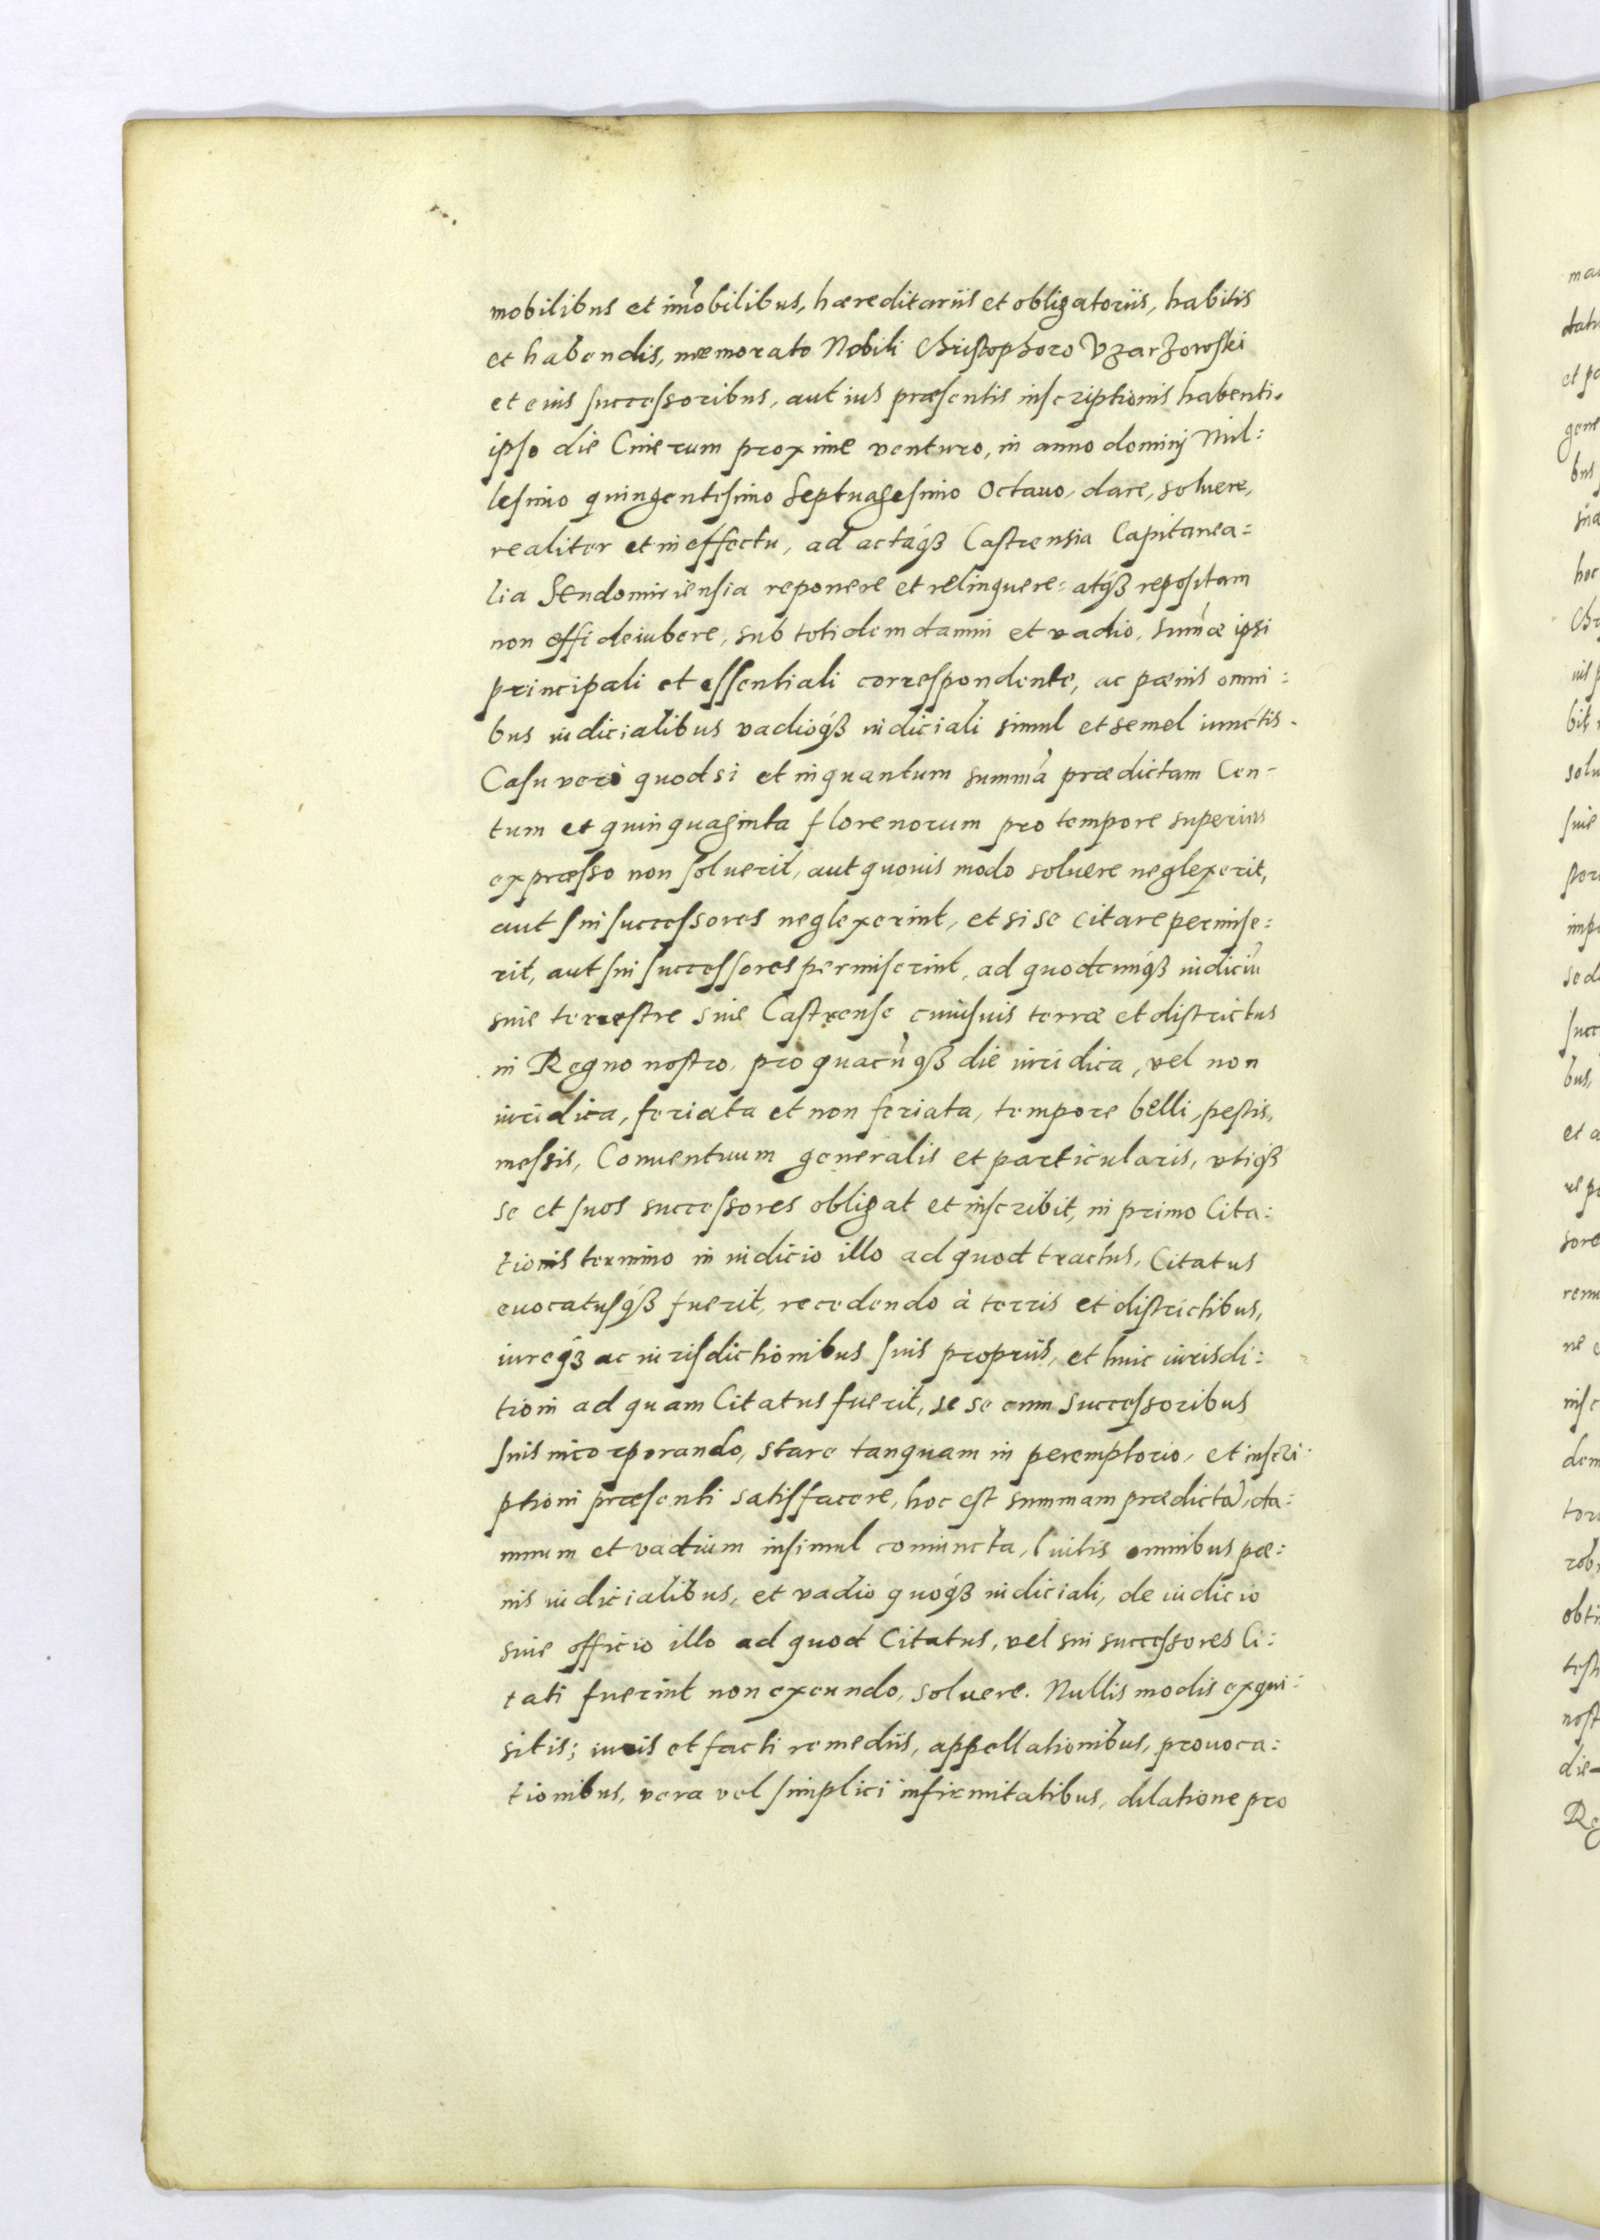 mobilibus et im̃obilibus, hæreditariis et obligatoriis, habitis
et habendis, memorato Nobili Christophoro Vzarzowski
et eius successoribus, aut ius præsentis inscriptionis habenti,
ipso die Cinerum proxime venturo, in anno dominj Mil:
lesimo quingentesimo Septuagesimo Octauo, dare, soluere,
realiter et in effectu, ad actáqȝ Castrensia Capitanea:
lia Sendomiriensia reponere et relinquere: atqȝ repositam
non effideiubere, sub totidem damni et vadio, sum̃æ ipsi
principali et essentiali correspondente, ac pœnis omni:
bus iudicialibus vadioqȝ iudiciali simul et semel iunctis.
Casu verò quod si et inquantum summã prædictam Cen-
tum et quinquaginta florenorum pro tempore superius
expræsso non soluerit, aut quouis modo soluere neglexerit,
aut sui successores neglexerint, et si se citare permise:
rit, aut sui successores permiserint, ad quodcunqȝ iudiciũ
siue terrestre siue Castrense cuiusuis terræ et districtus
in Regno nostro, pro quacũqȝ die iuridica, vel non
iuridica, feriata et non feriata, tempore belli, pestis,
messis, Conuentuum generalis et particularis, vtiqȝ
se et suos successores obligat et inscribit, in primo Cita:
tionis termino in iudicio illo ad quod tractus, Citatus
euocatusqȝ fuerit, recedendo à terris et districtibus,
iureqȝ ac iurisdictionibus suis propriis, et huic iurisdi:
tioni ad quam Citatus fuerit, se se cum successoribus
suis incorporando, stare tanquam in peremptorio, et inscri:
ptioni præsenti satisfacere, hoc est summam prædictã, da:
mnum et vadium insimul coniuncta, luitis omnibus pœ:
nis iudicialibus, et vadio quoqȝ iudiciali, de iudicio
siue officio illo ad quod Citatus, vel sui successores Ci:
tati fuerint non exeundo, soluere. Nullis modis exqui:
sitis; iuris et facti remediis, appellationibus, prouoca:
tionibus, vera vel simplici infirmitatibus, dilatione pro